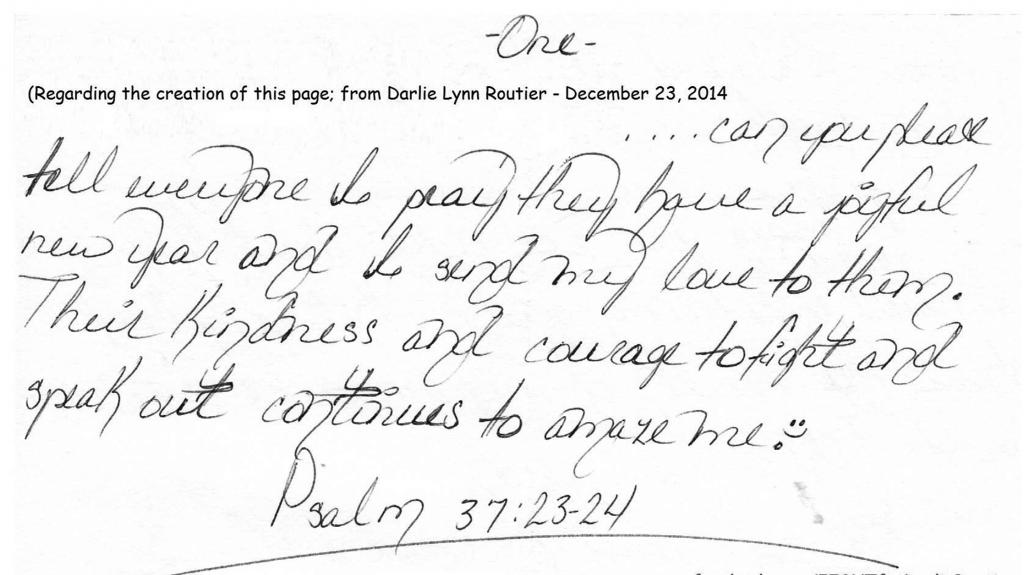 -One-
(Regarding the creation of this page; from Darlie Lynn Routier - December 23, 2014
.... can you please
tell everyone I pray they have a joyful
new year and I send my love to them.
Their kindness and courage to fight and
speak out continues to amaze me. :)
Psalm 37:23-24